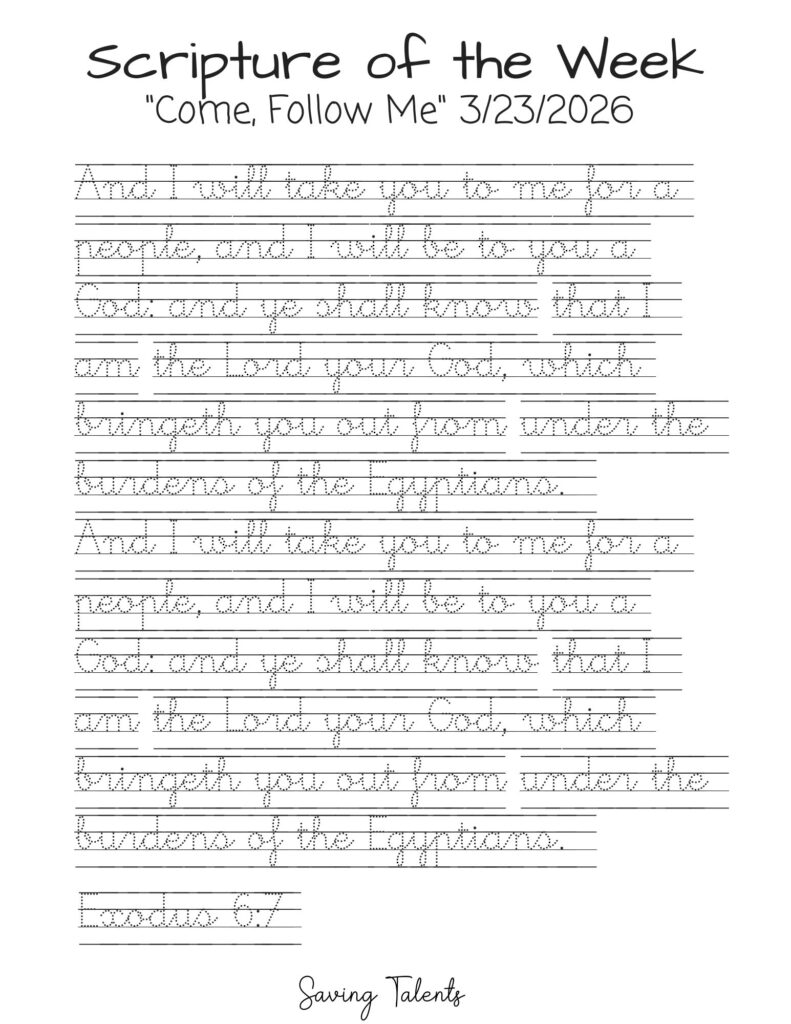 Scripture of the Week
"Come, Follow Me" 3/23/2026
And I will take you to me for a
people, and I will be to you a
God: and ye shall know that I
am the Lord your God, which
bringeth you out from under the
burdens of the Egyptians.
And I will take you to me for a
people, and I will be to you a
God: and ye shall know that I
am the Lord your God, which
bringeth you out from under the
burdens of the Egyptians.
Exodus 6:7
Saving Talents